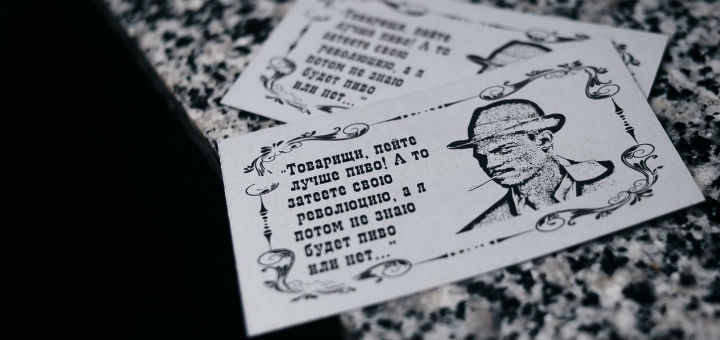 Товарищи, пейте
лучше пиво! А то
затеете свою
революцию, а я
потом не знаю
будет пиво
или нет..."
"Товарищи, пейте
лучше пиво! А то
затеете свою
революцию, а я
потом не знаю
будет пиво
или нет..."